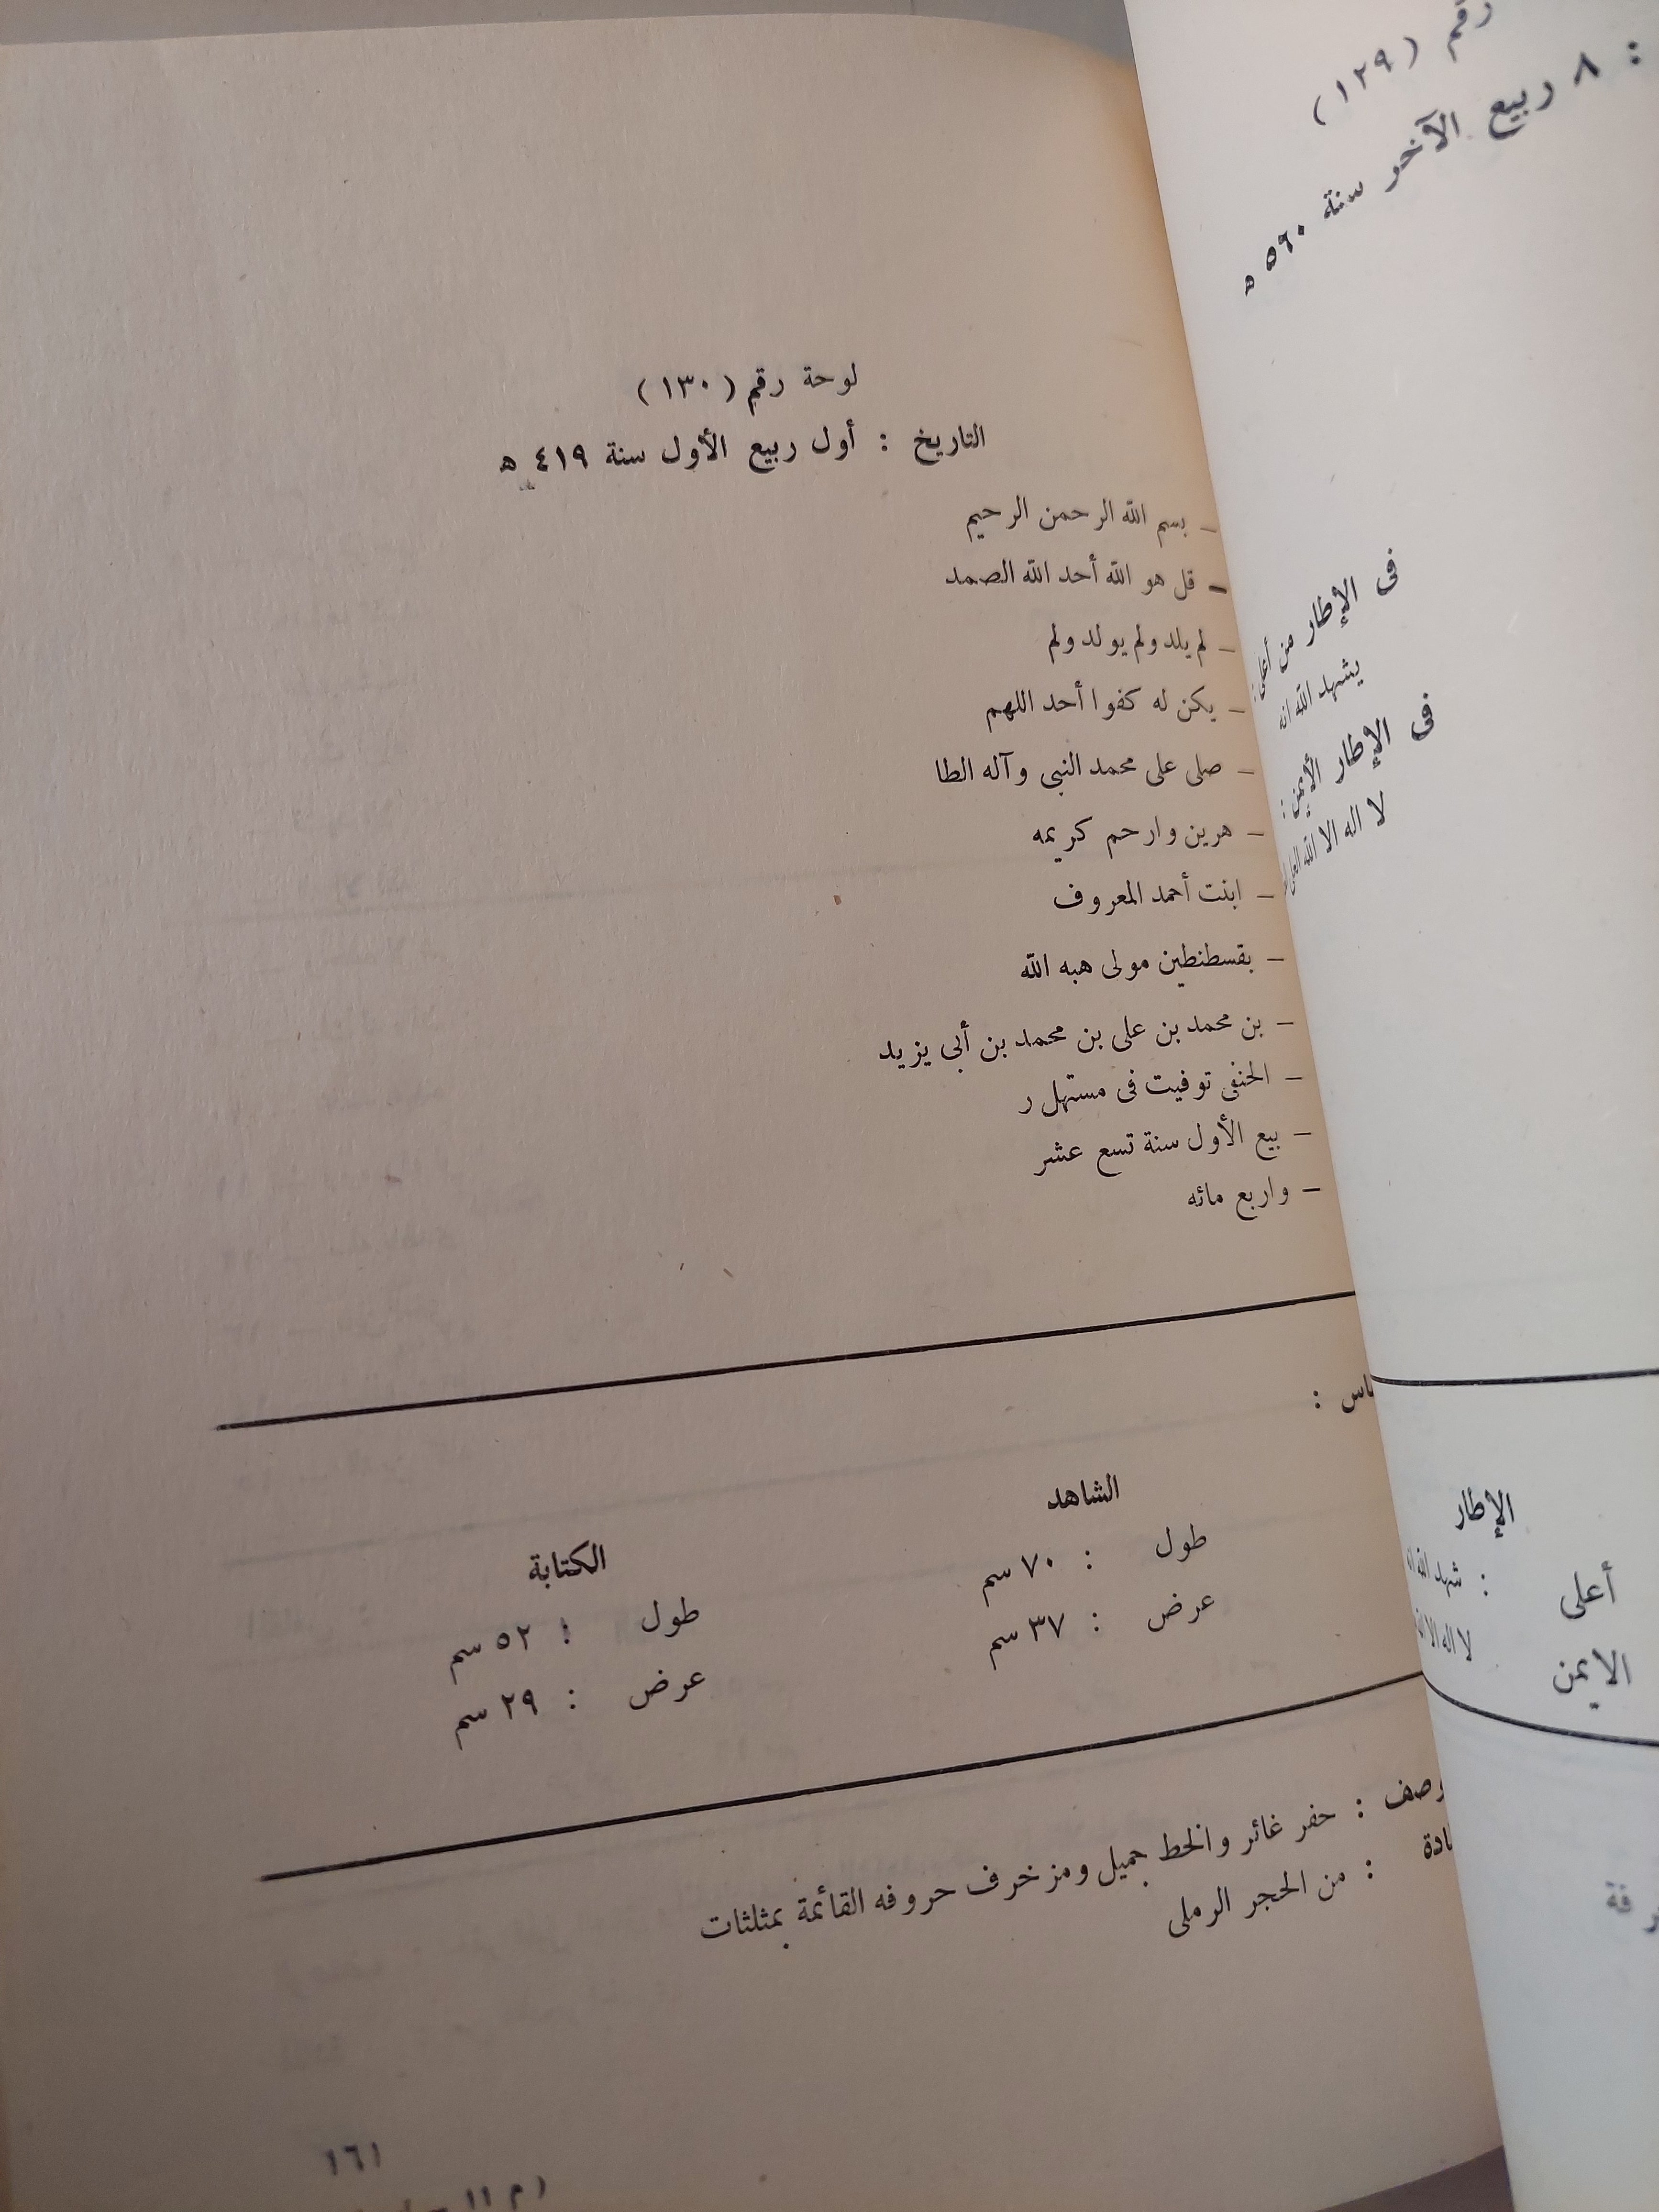 رقم (١٢٩)
: ٨ ربيع الآخر سنة ٥٦٠ ه
فى الإطار من أعلى :
يشهد الله انه
فى الإطار الأيمن :
لا اله الا الله العلى
الإطار
أعلى : شهد الله انه
الايمن لا اله الا الله
لوحة رقم (١٣٠)
التاريخ : أول ربيع الأول سنة ٤١٩ ه
– بسم الله الرحمن الرحيم
– قل هو الله أحد الله الصمد
– لم يلد ولم يولد ولم
– يكن له كفوا أحد اللهم
– صلى على محمد النبى وآله الطا
– هرين وارحم كريمه
– ابنت أحمد المعروف
– بقسطنطين مولى هبه الله
– بن محمد بن على بن محمد بن أبى يزيد
– الحنفى توفيت فى مستهل ر
– بيع الأول سنة تسع عشر
– واربع مائه
الشاهد
طول : ٧٠ سم
عرض : ٣٧ سم
الكتابة
طول : ٥٢ سم
عرض : ٢٩ سم
وصف : حفر غائر والخط جميل ومزخرف حروفه القائمة بمثلثات
ادة : من الحجر الرملى
١٦١